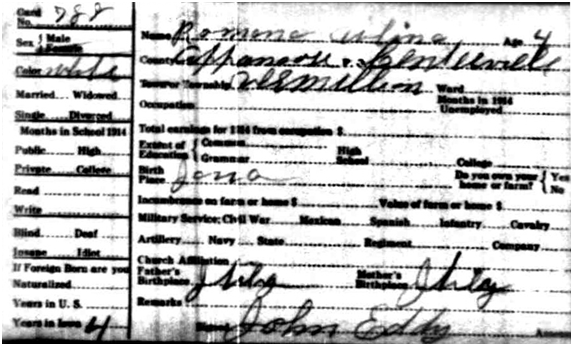 Card No. 788
Sex { Male Female
Name Romano Age 4
Color White
County Appanoose P. O. Centerville
Town or Township Vermillion Ward
Married Widowed
Occupation Months in 1914 Unemployed
Single Divorced
Total earnings for 1914 from occupation $
Months in School 1914
Extent of Education { Common Grammar High School College
Public High
Private College
Birth Place Iowa Do you own your home or farm? { Yes No
Read
Incumbrance on farm or home $ Value of farm or home $
Write
Military Service: Civil War Mexican Spanish Infantry Cavalry
Blind Deaf
Artillery Navy State Regiment Company
Insane Idiot
Church Affiliation
If Foreign Born are you Naturalized
Father's Birthplace Italy Mother's Birthplace Italy
Years in U. S.
Remarks
Years in Iowa 4
Signed John Eddy